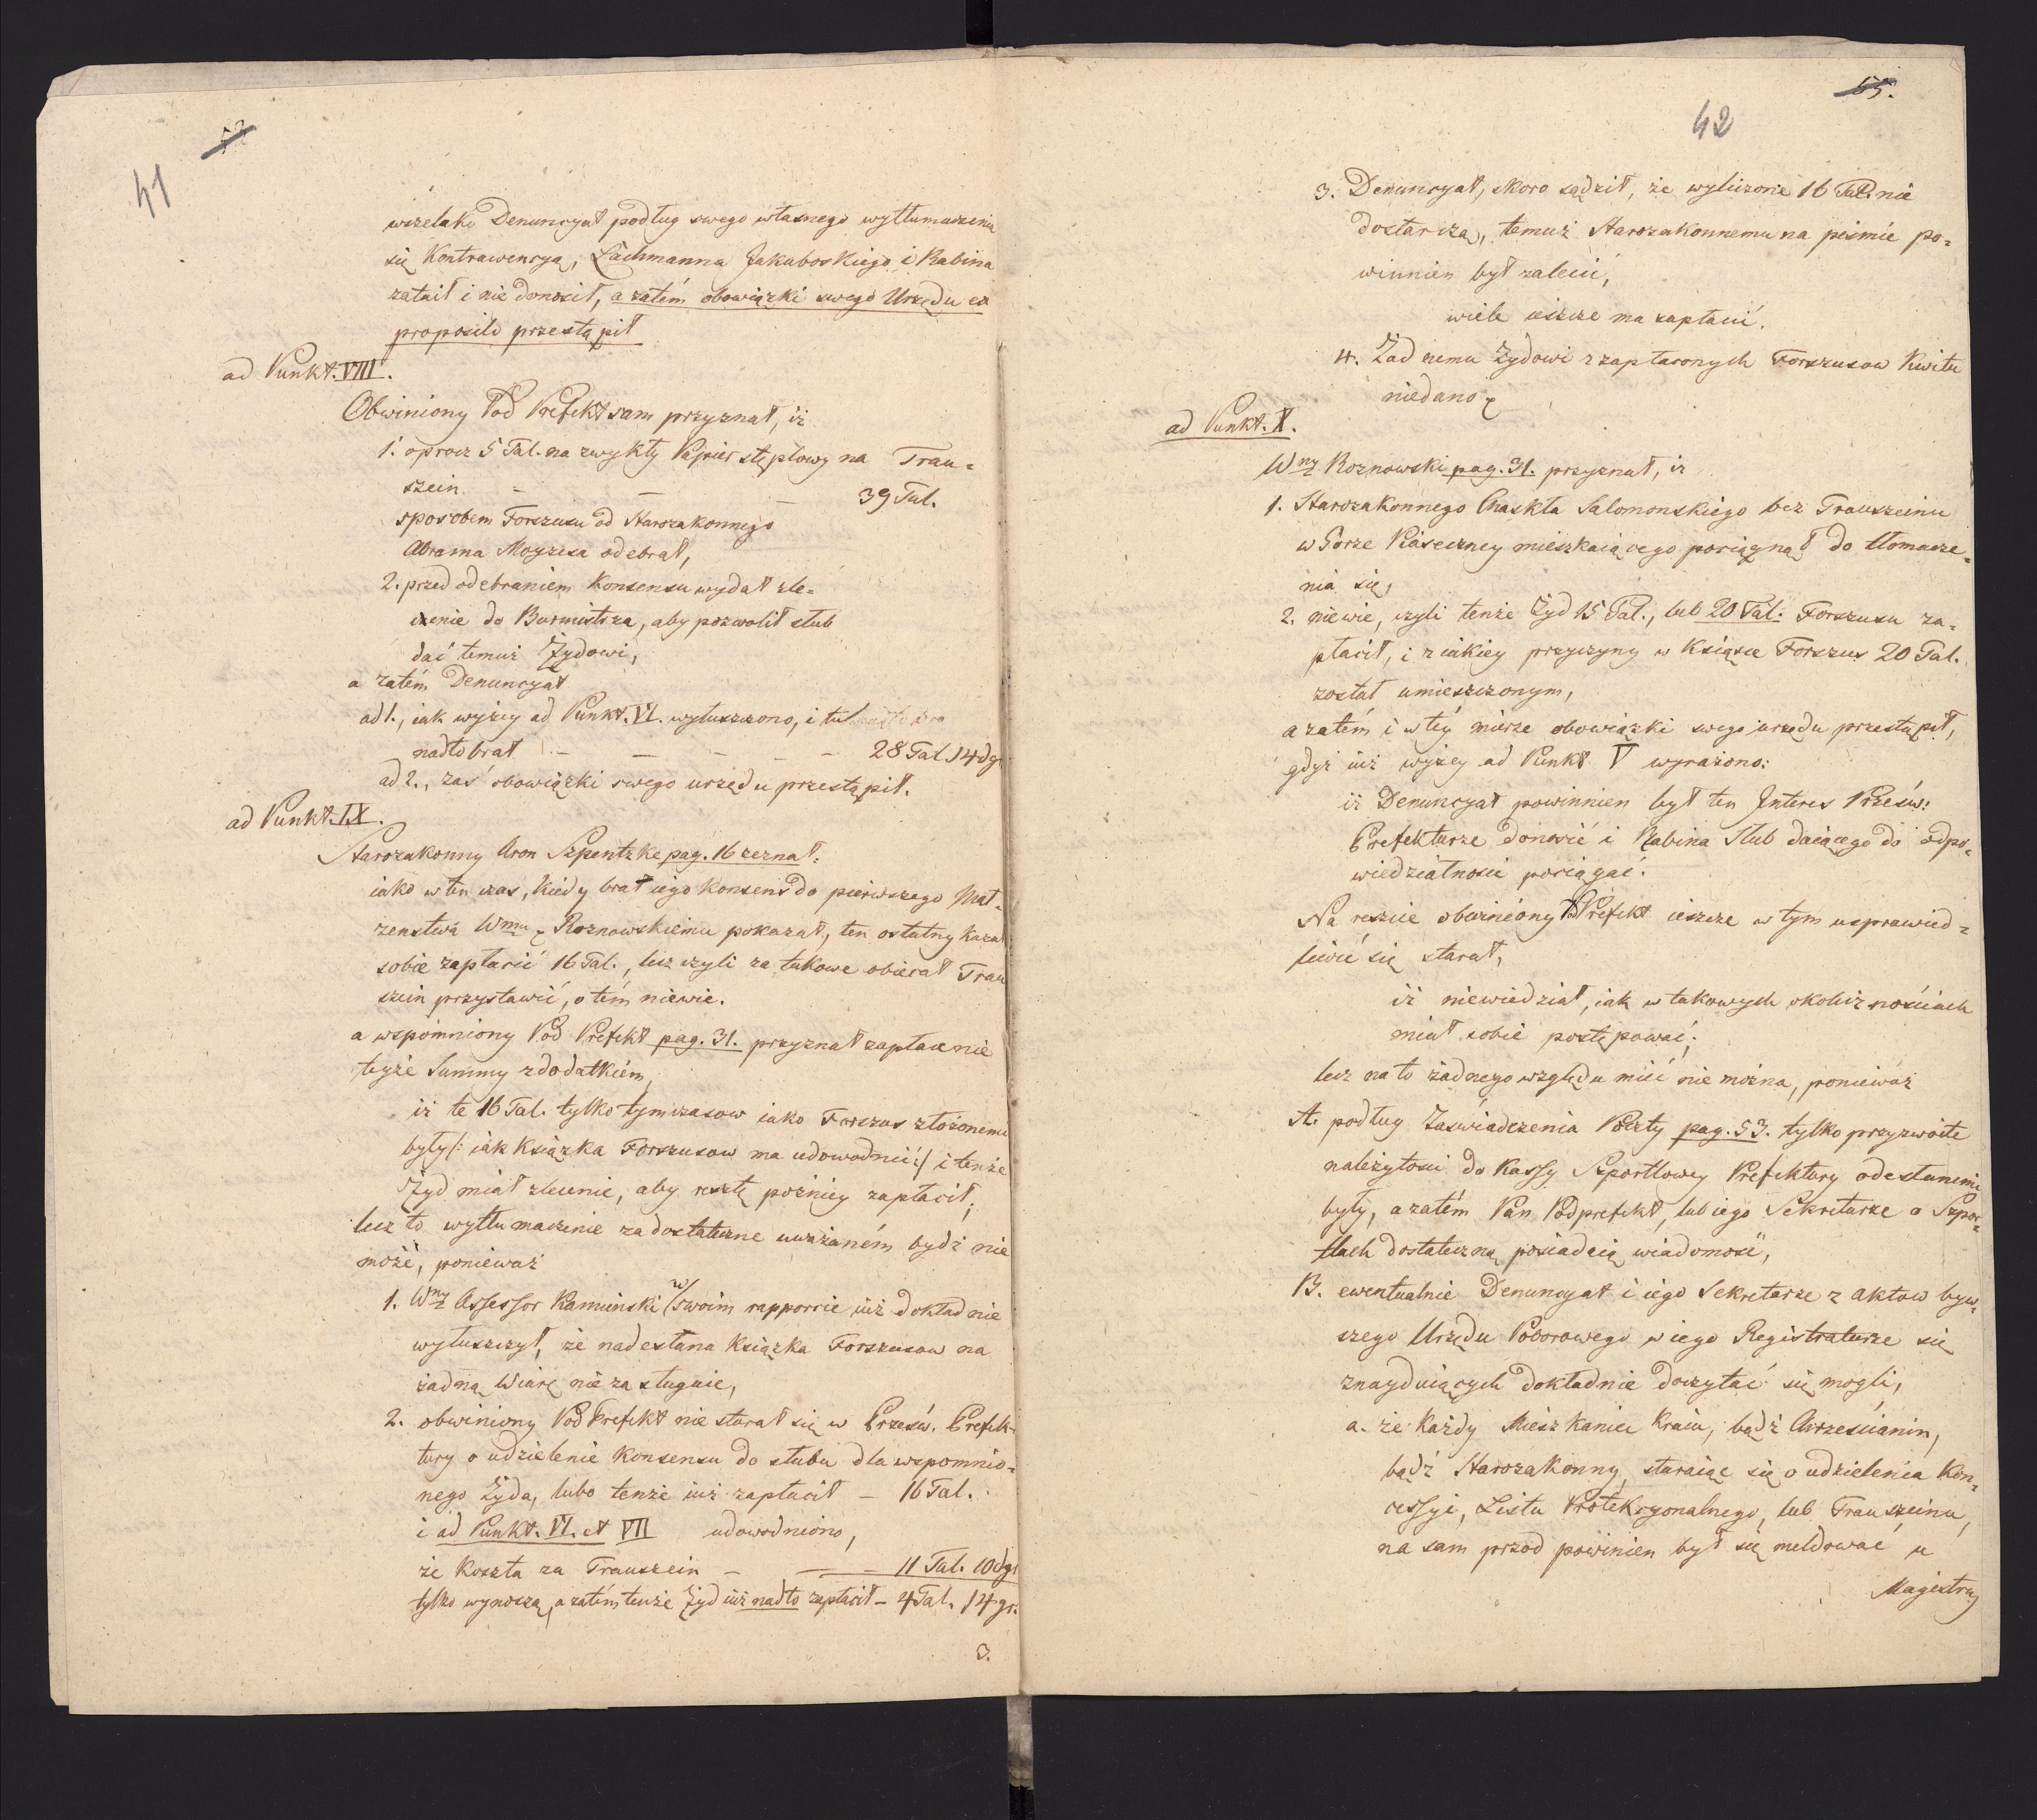 41
wszelako Denuncyat podług swego własnego wytłumaczenia
się Kontrawencyą, Lachmanna Jakuboskiego i Rabina
zataił i nie donosił, a zatém obowiązki swego Urzędu ex
proposito przestąpił
ad Punkt. VIII.
Obwiniony Pod Prefekt sam przyznał, iż
1. oprocz 5 Tal. na zwykły Papier stęplowy na Trau=
szein. — — — 39 Tal.
sposobem Forszusu od Starozakonnego
Abrama Moyzesa odebrał,
2. przed odebraniem Konsensu wydał zle=
cenie do Burmistrza, aby pozwolił slub
dać temuż Żydowi,
a zatém Denuncyat
ad 1., iak wyżey ad Punkt. VI. wyłuszczono, i tu
nadto brał — — — — 28 Tal. 14 dgr
ad 2., zaś obowiązki swego urzędu przestąpił.
ad Punkt. IX.
Starozakonny Aron Szpentzke pag. 16 zeznał:
iako w ten czas, kiedy brat iego Konsens do pierwszego Mał=
zenstwa Wmu Roznowskiemu pokazał, ten ostatny kazał
sobie zapłacić 16 Tal., lecz czyli za takowe obierał Trau
szein przystawić, o tém niewie.
a wspomniony Pod Prefekt pag. 31. przyznał zapłacenie
teyże Summy z dodatkiém,
iż te 16 Tal. tylko tymczasow iako Forszus złożonemi
były /: iak Książka Forszusow ma udowodnić :/ i tenże
Żyd miał zlecenie, aby resztę poźniey zapłacił,
lecz to wytłumaczenie za dostateczne uważaném bydź nie
może, ponieważ
1. Wny Assessor Kamieński w swoim rapporcie iuż dokładnie
wyłuszczył, że nadesłana Książka Forszusow na
żadną Wiarę nie zasługuie,
2. obwiniony Pod Prefekt nie starał się w Przesw. Prefek=
tury o udzielenie Konsensu do slubu dla wspomnio=
nego Żyda, lubo tenże iuż zapłacił — 16 Tal.
i ad Punkt. VI. et VII udowodniono,
że Koszta za Trauszein — — — 11 Tal. 10 dgr
tylko wynoszą, a zatém tenże Żyd iuż nadto zapłacił — 4 Tal. 14 gr.
3.
55.
42
3. Denuncyat, skoro sądził, że wyliczone 16 Tal. nie
dostarczą, temuż Starozakonnemu na pismie po=
winnien był zalecić,
wiele ieszcze ma zapłacić.
4. Żadnemu Żydowi z zapłaconych Forszusow Kwitu
niedano
ad Punkt. X.
Wny Roznowski pag. 31. przyznał, iż
1. Starozakonnego Chaskla Salomonskiego bez Trauszeinu
w Gorze Piaseczney mieszkaiącego pociągnął do tłomacze=
nia się,
2. niewie, czyli tenże Żyd 15 Tal., lub 20 Tal: Forszusu za=
płacił, i z iakiey przyczyny w Książce Forszus 20 Tal.
został umieszczonym,
a zatém i w téy mierze obowiązki swego urzędu przestąpił,
gdyż iuż wyżey ad Punkt V wyrażono:
iż Denuncyat powinnien był ten Interes Przesw:
Prefekturze donosić i Rabina Slub daiącego do odpo=
wiedzialnosci pociągać.
Na reszcie obwiniony Pod Prefekt ieszcze w tym usprawied=
liwić się starał,
iż niewiedział, iak w takowych okolicznościach
miał sobie postępować;
lecz na to żadnego względu mieć nie można, ponieważ
A. podług Zaświadczenia Poczty pag. 53. tylko przyzwoite
należytosci do Kassy Szportlowey Prefektury odesłanemi
były, a zatém Pan Podprefekt, lub iego Sekretarze o Szpor=
tlach dostateczną posiadaią wiadomość,
B. ewentualnie Denuncyat i iego Sekretarze z aktow byw=
szego Urzędu Poborowego w iego Registraturze się
znayduiących dokładnie doczytać się mogli,
a. że każdy Mieszkaniec Kraiu, bądź Chrześcianin,
bądź Starozakonny, staraiąc się o udzielenia Kon=
cessyi, Listu Protekcyonalnego, lub Trauszeinu,
na sam przod powinien był się meldować u
Magistra